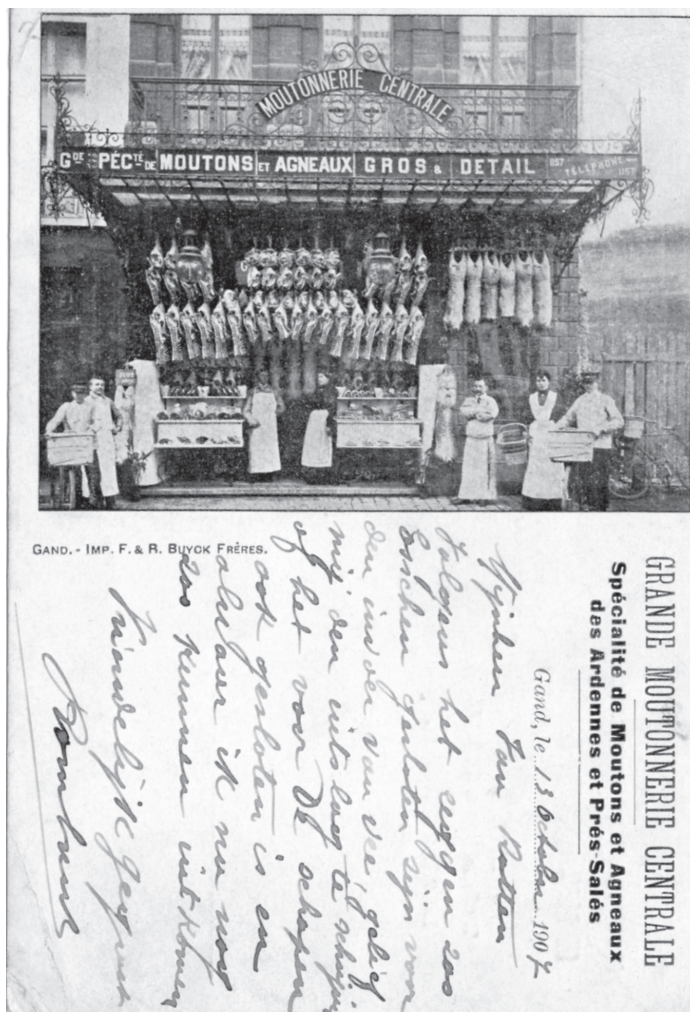 MOUTONNERIE CENTRALE
GDE SPÉCTÉ DE MOUTONS ET AGNEAUX GROS & DETAIL 1157 TÉLÉPHONE 1157
GAND. - IMP. F. & R. BUYCK FRÈRES.
GRANDE MOUTONNERIE CENTRALE
Spécialité de Moutons et Agneaux
des Ardennes et Prés-Salés
Gand, le 18 October 1907
Van
Volgens het zeggen zoo
gesloten zijn voor
den invoer van vee gelief
mij den uitslag te
of het voor De schapen
ook gesloten is en
alwaar ik nu nog
zoo kunnen uitkomen
Vriendelijk gegroet